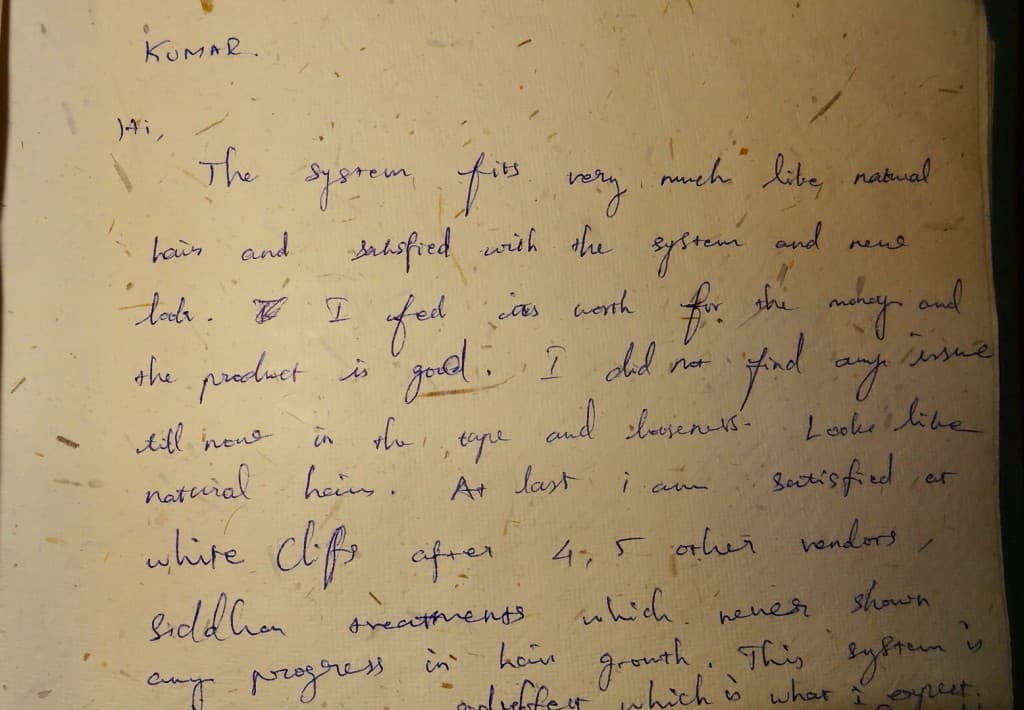 KUMAR.
Hi,
The system fits very much like natural
hair and satisfied with the system and new
look. I feel its worth for the money and
the product is good. I did not find any issue
till now in the tape and looseness. Looks like
natural hair. At last i am satisfied at
white Cliffs after 4, 5 other vendors,
Siddha treatments which never shown
any progress in hair growth. This system is
which is what i expect.